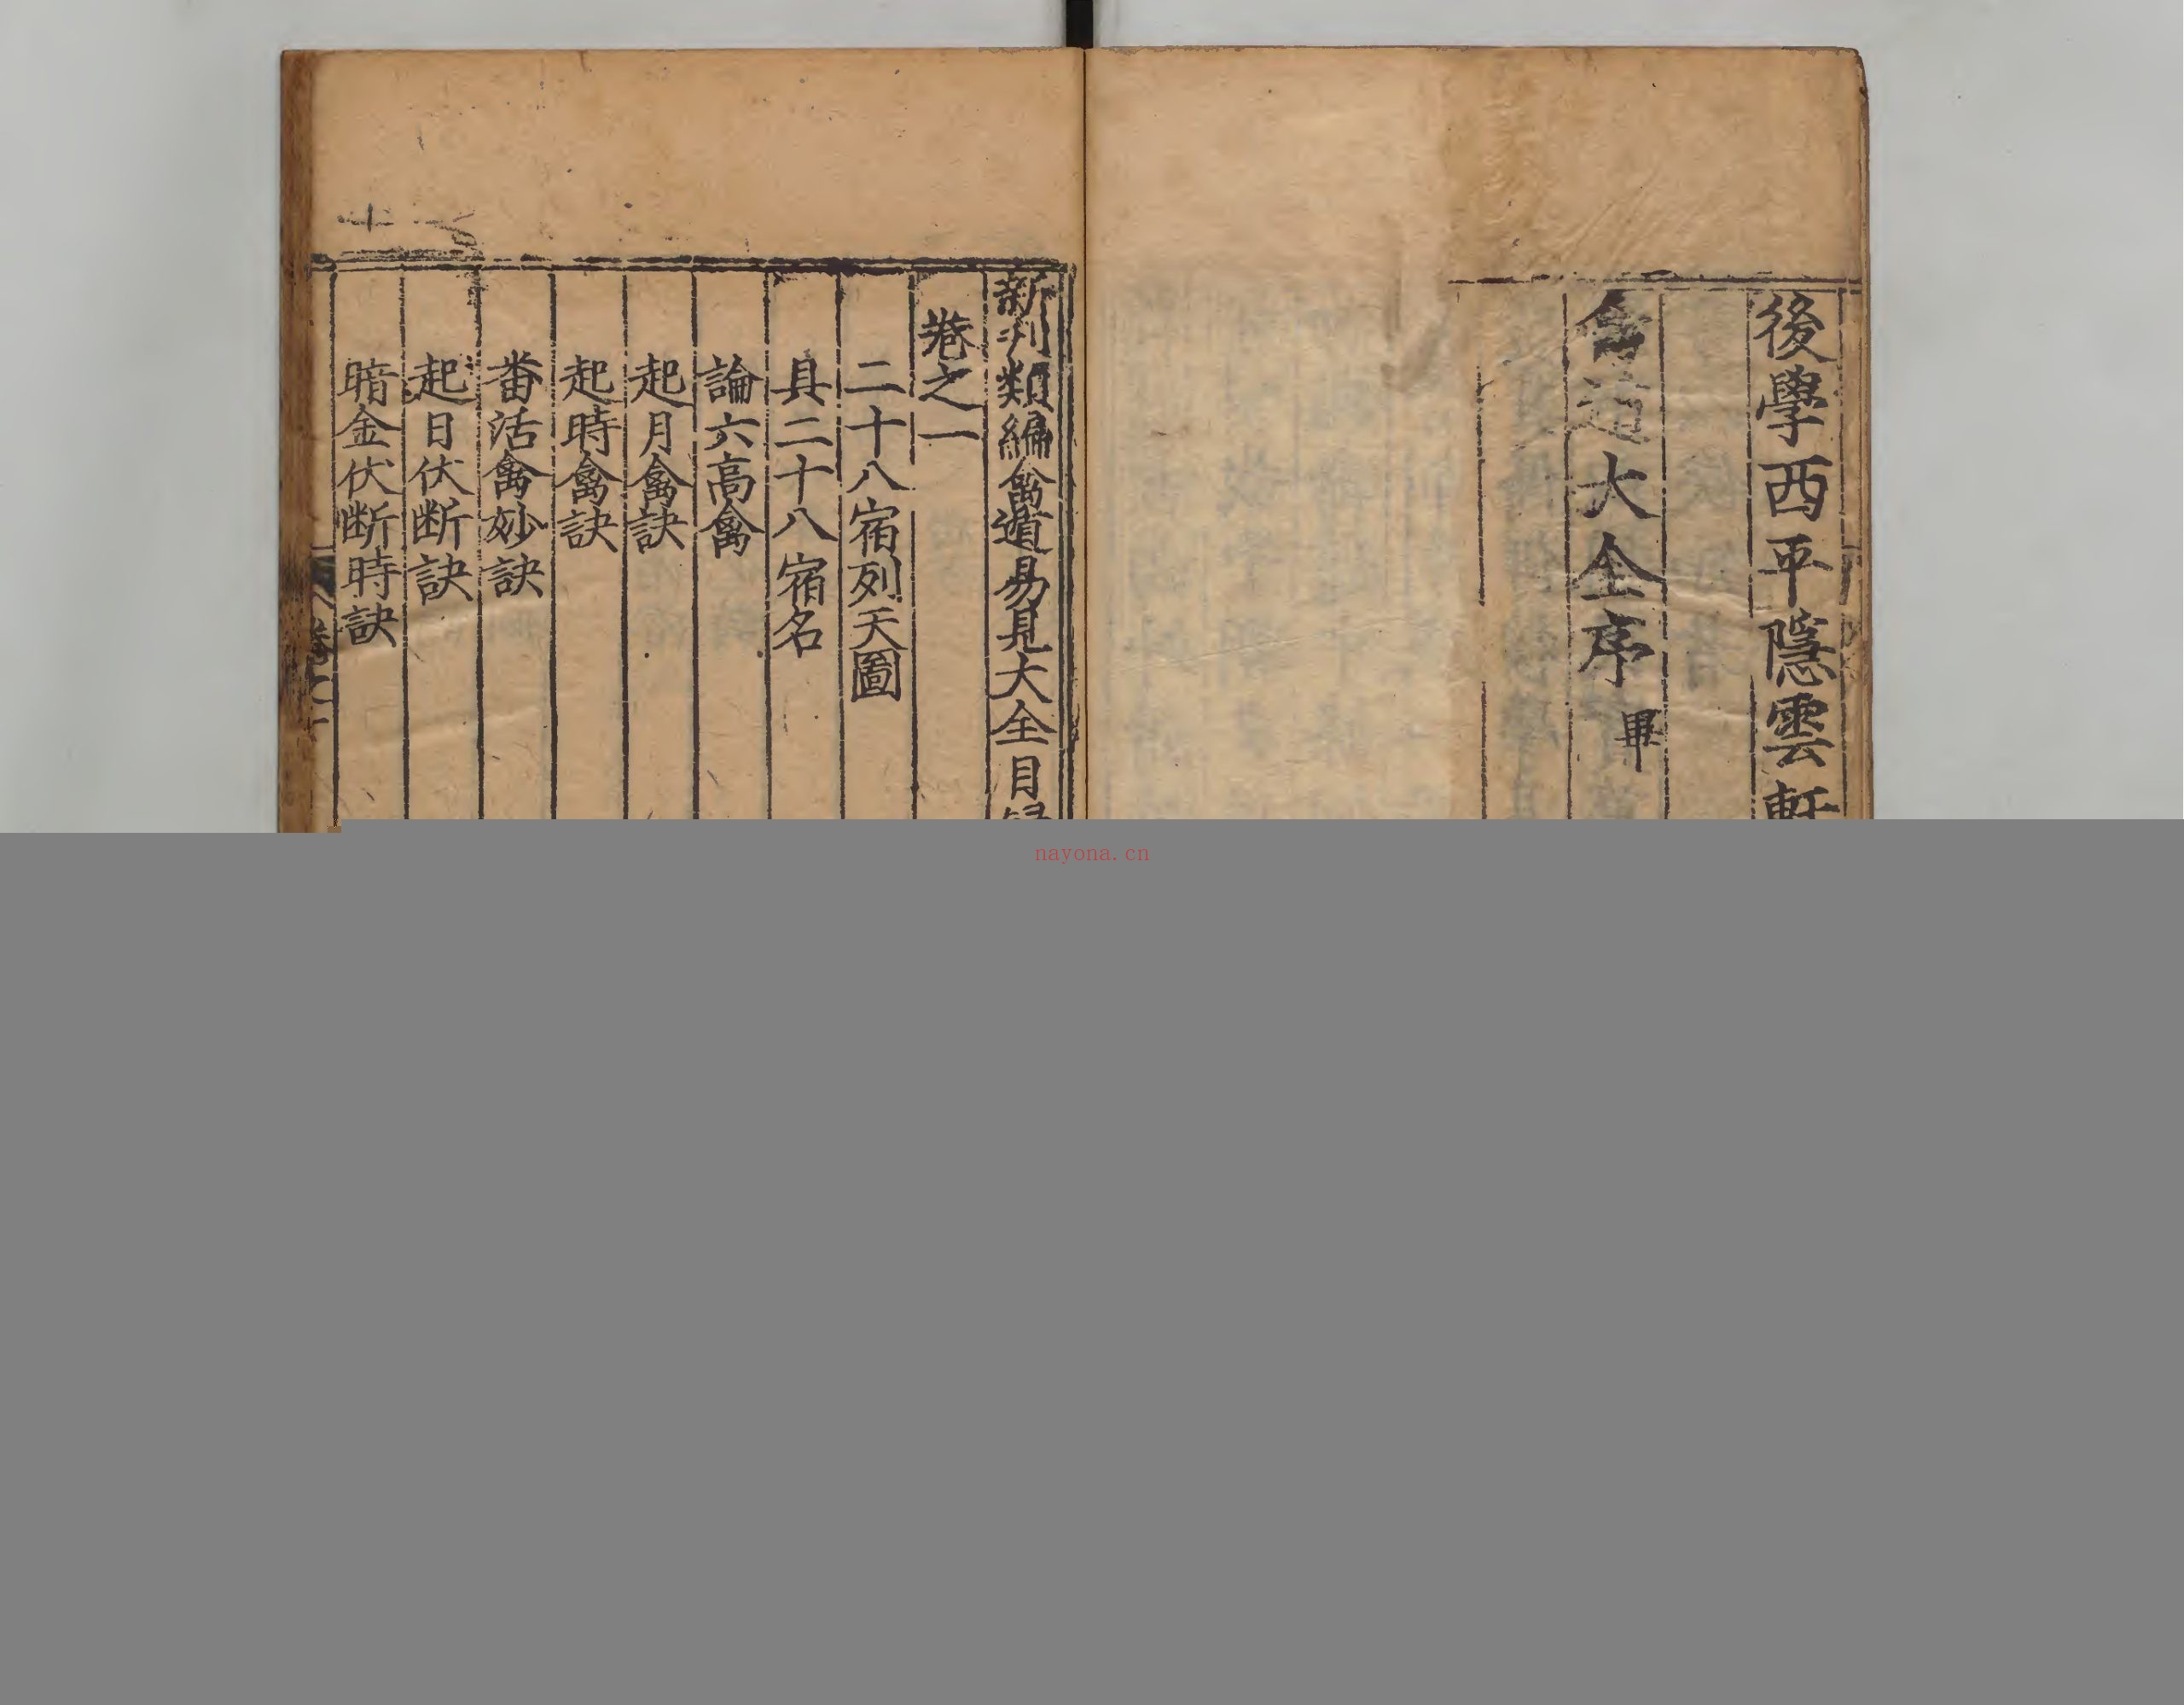 後學西平隱雲軒
禽遁大全序 畢
新刋類編禽遁易見大全目
卷之一
二十八宿列天圖
具二十八宿名
論六高禽
起月禽訣
起時禽訣
畨活禽妙訣
起日伏断訣
暗金伏断時訣
卷之一
nayona.cn